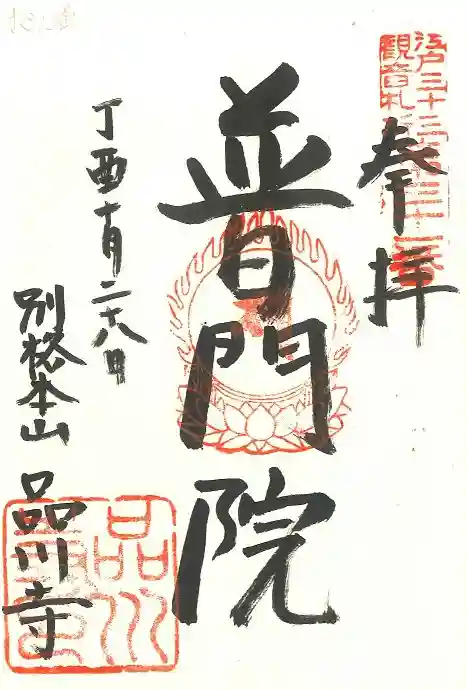 奉拝
普門院
丁酉十月二十八日
別格本山 品川寺
江戸三十三
観音札
品川